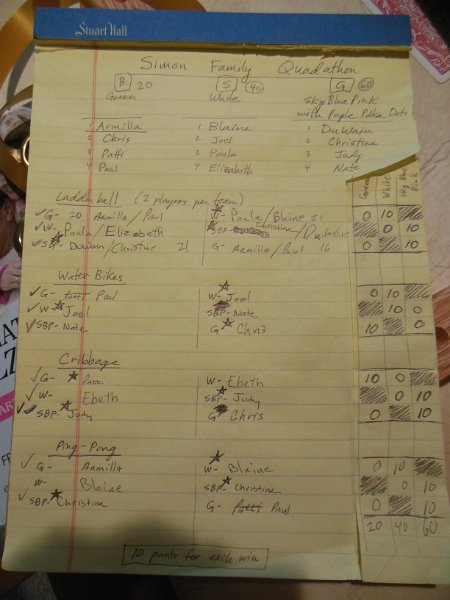 Stuart Hall
Simon Family Quadathon
B 20 S 40 G 60
Green White Sky Blue Pink
with Purple Polka Dots
1 Armilla 1 Blaine 1 DuWain
2 Chris 2 Joel 2 Christine
3 Patti 3 Paula 3 Judy
4 Paul 4 Elizabeth 4 Nate
Green White Sky Blue Pink
Ladda ball (2 players per team)
G- 20 Armilla/Paul W- Paula/Blaine 21 0 10
W- Paula/Elizabeth SBP- Christine/DuWain 0 10
SBP- DuWain/Christine 21 G- Armilla/Paul 16 0 10
Water Bikes
G- Patti Paul W- Joel 0 10
W- Joel SBP- Nate 10 0
SBP- Nate G- Chris 10 0
Cribbage
G- Patti W- Ebeth 10 0
W- Ebeth SBP- Judy 0 10
SBP- Judy G- Chris 0 10
Ping-Pong
G- Armilla W- Blaine 0 10
W- Blaine SBP- Christine 0 10
SBP- Christine G- Patti Paul 0 10
20 40 60
10 points for each win